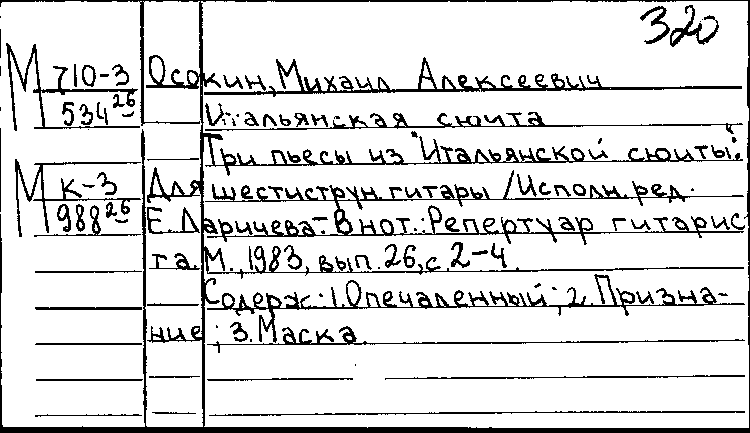 320
М 710-3 Осокин, Михаил Алексеевич
534 26 Итальянская сюита
Три пьесы из "Итальянской сюиты".
М К-3 Для шестиструн. гитары /Исполн. ред.
988 26 Е. Ларичева.- В нот.: Репертуар гитарис
та. М., 1983, вып. 26, с. 2-4.
Содерж.: 1. Опечаленный; 2. Призна-
ние; 3. Маска.